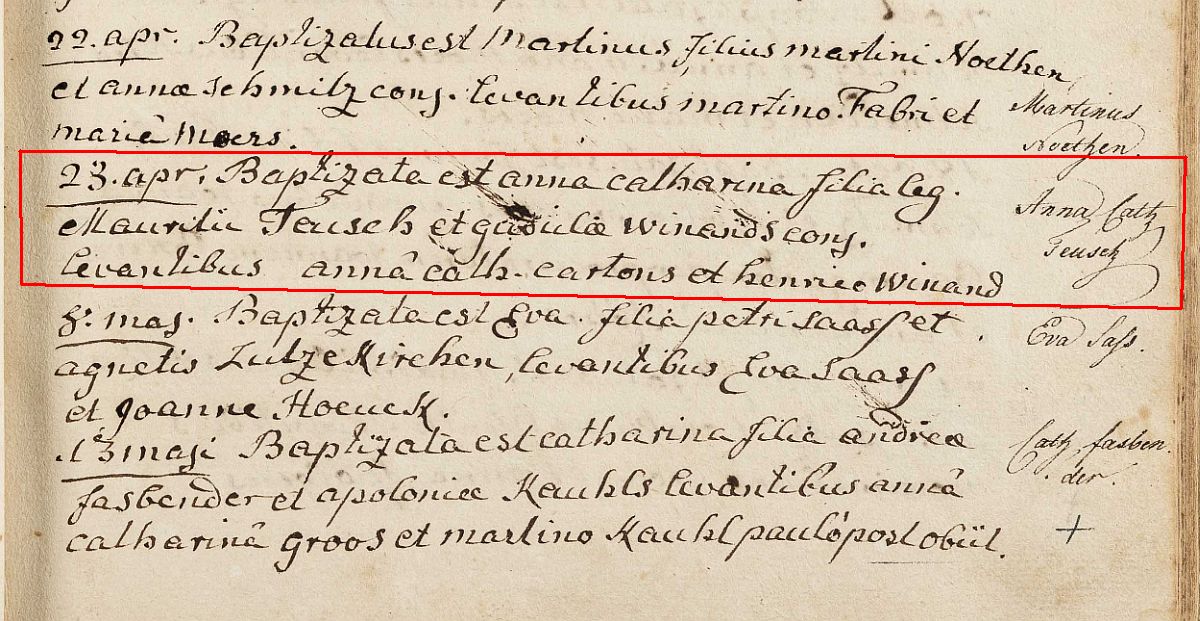 22. apr. Baptizatus est Martinus filius martini Noethen
et annæ schmitz conj. levantibus martino Fabri et
mariâ Moers.
Martinus
Noethen.
23. apr. Baptizata est anna catharina filia leg.
Mauritii Teusch et gudulæ winands conj.
levantibus annâ cath. cartons et henrico winand
Anna Cath
Teusch
8. maj. Baptizata est Eva filia petri saass et
agnetis Lutzekirchen, levantibus Eva saass
et Joanne Hoeuck.
Eva Sass.
13 maji Baptizata est catharina filia andreæ
fasbender et apoloniæ Kauhls levantibus annâ
catharinâ groos et martino Kauhl paulo post obiit.
Cath. fasben
der.
+